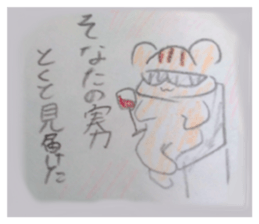 そなたの実力
とくと見届けた